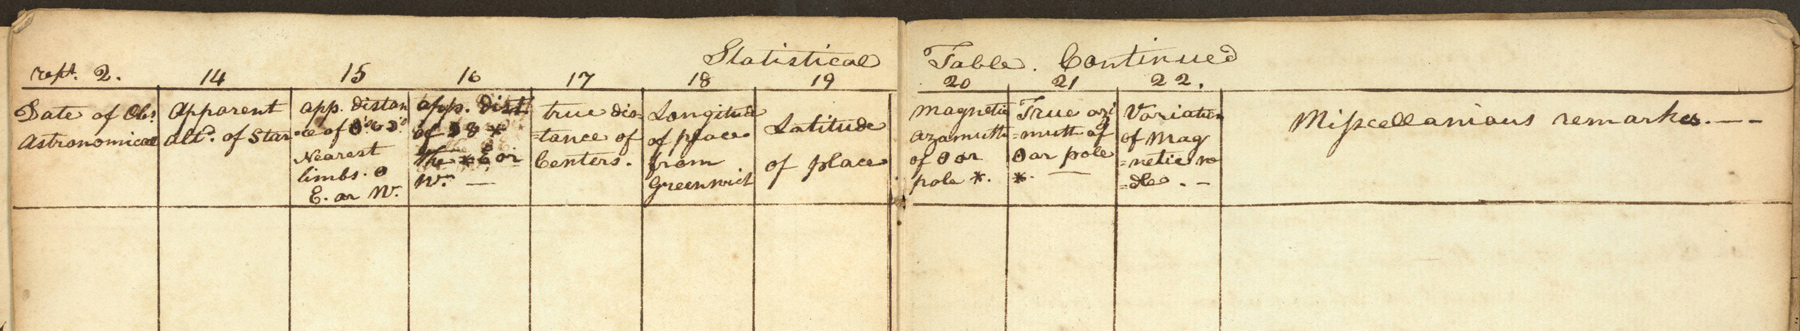 Statistical Table. Continued
rept. 2.
14
15
16
17
18
19
20
21
22.
Date of Obs.
Astronomical
Apparent
Altd. of Star
App. Distan
=ce of ☉'s & ☽'s
Nearest
limbs. ☉
E. or W.
App. Dist.
of ☽ & *
The * E or
W. —
true dis
=tance of
Centers.
Longitude
of place
from
Greenwich
Latitude
of place
Magnetic
Azamuth
of ☉ or
pole *.
True azi
=muth of
☉ or pole
*. —
Variation
of Mag
=netic ne
=dle. —
Miscellanious remarks. — —